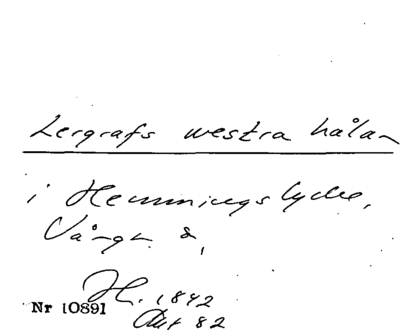 Lergrafs westra hålan
i Hemmingslycke,
Vångr. &,
H. 1842
Akt 82
Nr 10891